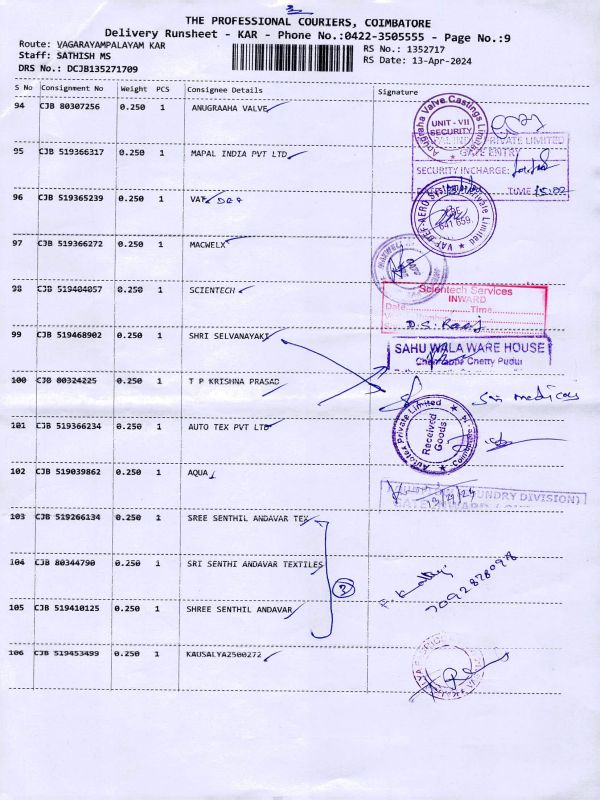 THE PROFESSIONAL COURIERS, COIMBATORE
Delivery Runsheet - KAR - Phone No.:0422-3505555 - Page No.:9
Route: VAGARAYAMPALAYAM KAR
Staff: SATHISH MS
DRS No.: DCJB135271709
RS No.: 1352717
RS Date: 13-Apr-2024
S No Consignment No Weight PCS Consignee Details Signature
94 CJB 80307256 0.250 1 ANUGRAAHA VALVE
Anugraha Valve Castings Limited
UNIT - VII
SECURITY
95 CJB 519366317 0.250 1 MAPAL INDIA PVT LTD
MAPAL INDIA PRIVATE LIMITED
GATE ENTRY
SECURITY INCHARGE:
TIME
96 CJB 519365239 0.250 1 VAF DEF
641 659
97 CJB 519366272 0.250 1 MACWELX
98 CJB 519404057 0.250 1 SCIENTECH
Scientech Services
INWARD
Date Time
99 CJB 519468902 0.250 1 SHRI SELVANAYAKI
SAHU WALA WARE HOUSE
Chetty Pudur
100 CJB 80324225 0.250 1 T P KRISHNA PRASAD
Sri medicals
101 CJB 519366234 0.250 1 AUTO TEX PVT LTD
Autotex Private Limited
Received
Goods
102 CJB 519039862 0.250 1 AQUA
(FOUNDRY DIVISION)
13/4/24
103 CJB 519266134 0.250 1 SREE SENTHIL ANDAVAR TEX
104 CJB 80344790 0.250 1 SRI SENTHI ANDAVAR TEXTILES
3
105 CJB 519410125 0.250 1 SHREE SENTHIL ANDAVAR
106 CJB 519453499 0.250 1 KAUSALYA2500272